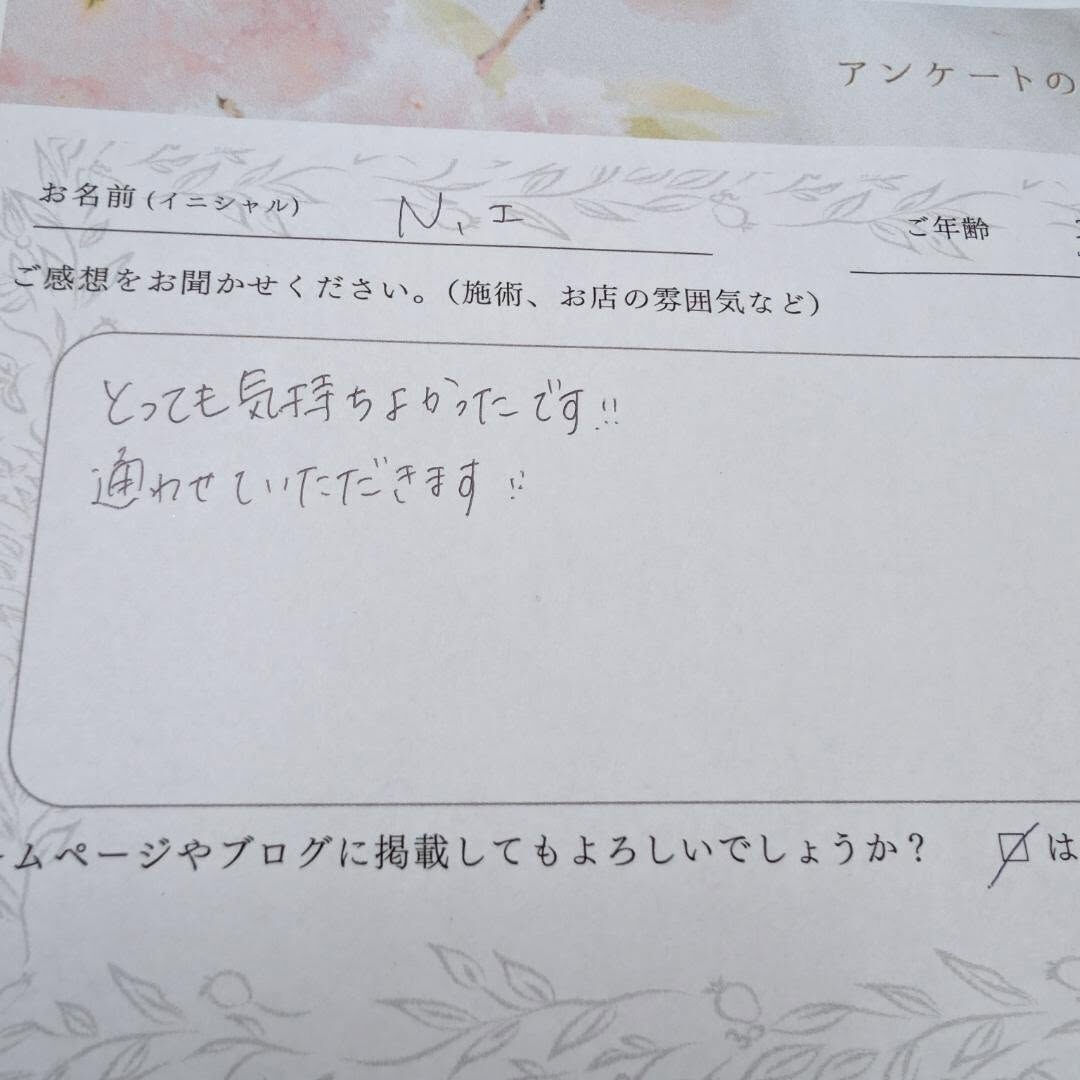 アンケートの
お名前(イニシャル) N.I ご年齢
ご感想をお聞かせください。(施術、お店の雰囲気など)
とっても気持ちよかったです!!
通わせていただきます!!
ームページやブログに掲載してもよろしいでしょうか? は